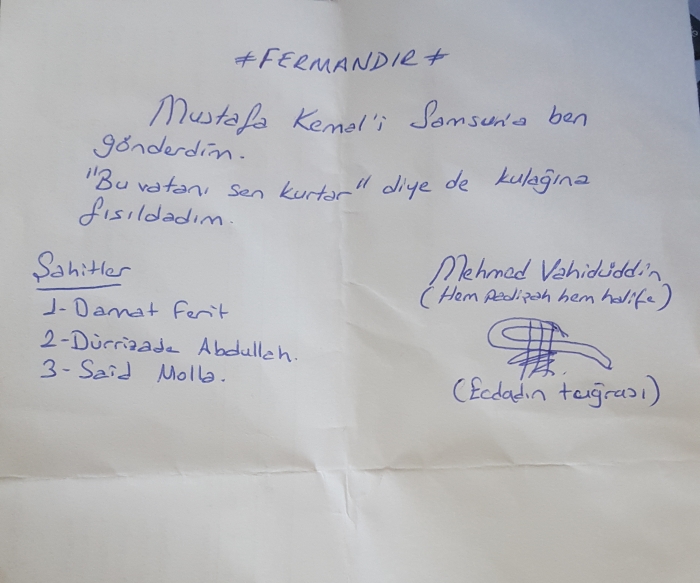 *FERMANDIR*
Mustafa Kemal'i Samsun'a ben
gönderdim.
"Bu vatanı sen kurtar" diye de kulağına
fısıldadım.
Şahitler
1-Damat Ferit
2-Dürrizade Abdullah.
3-Said Molla.
Mehmed Vahidüddin
(Hem padişah hem halife)
(Ecdadın tuğrası)